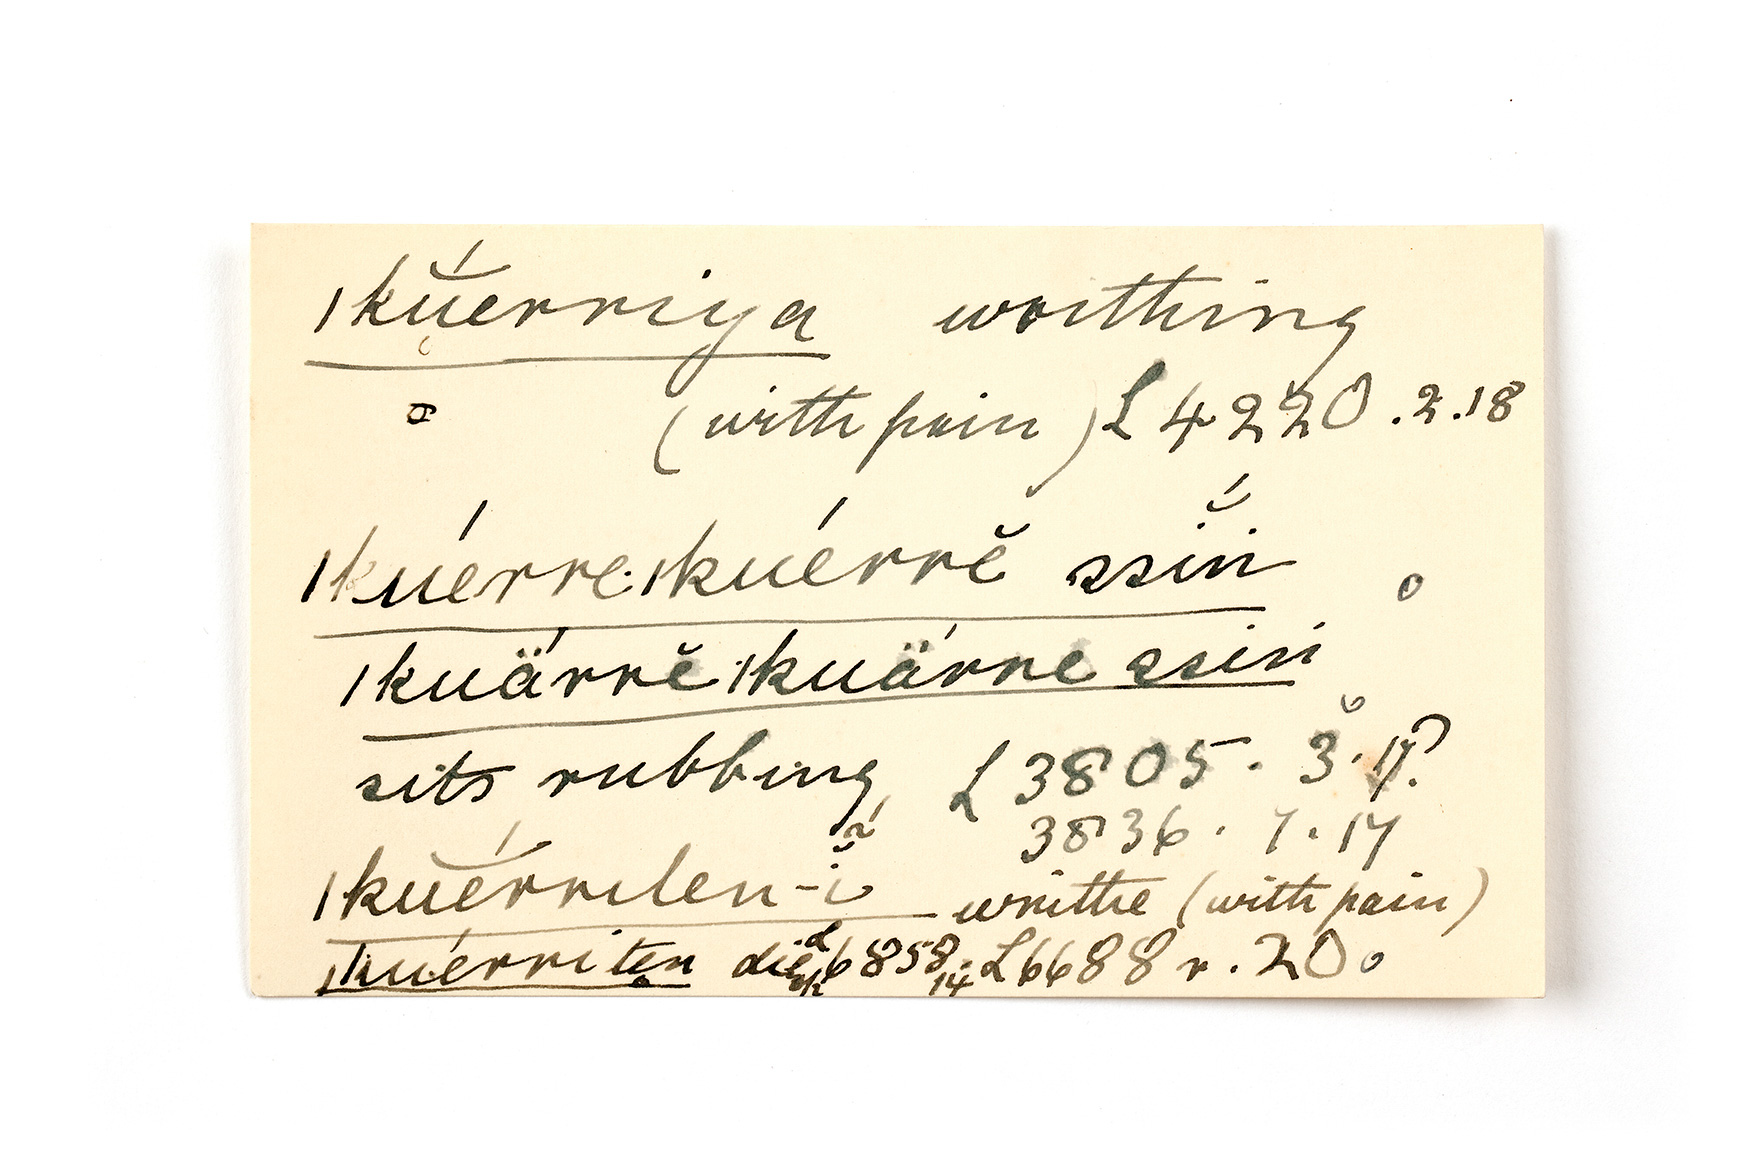 |kŭ́erriya writhing
(with pain) L 4220.2.18
|kuérre|kuérrĕ ssĭ́ń
|kuä́rrĕ|kuä́rre ssiń
sits rubbing, L 3805. 3.17?
3836. 7.17
|kuĕ́rriten-ĭ writhe (with pain)
|kuérriten 6858. L 6688 r. 20